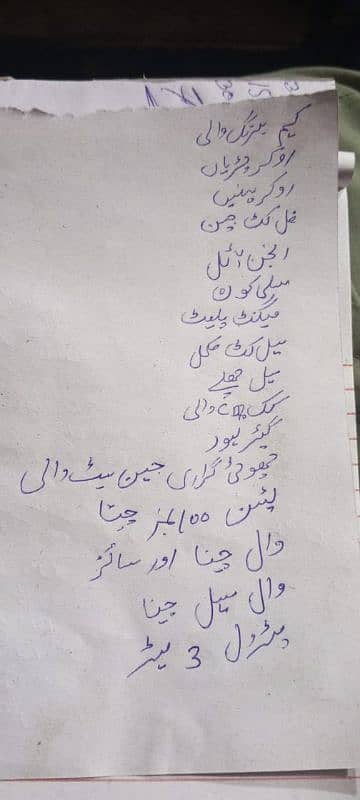 کیم بیرنگ والی
روکر پتریاں
روکر پنیں
فل کٹ چین
انجن آئل
سیلی کون
میگنٹ پلیٹ
سیل کٹ مکمل
سیل چھلے
کک والی
گیئر لیور
چھوٹی گراری چین سیٹ والی
پسٹن 100 نمبر چینا
وال چینا اور سائز
وال سیل چینا
پٹرول 3 لیٹر